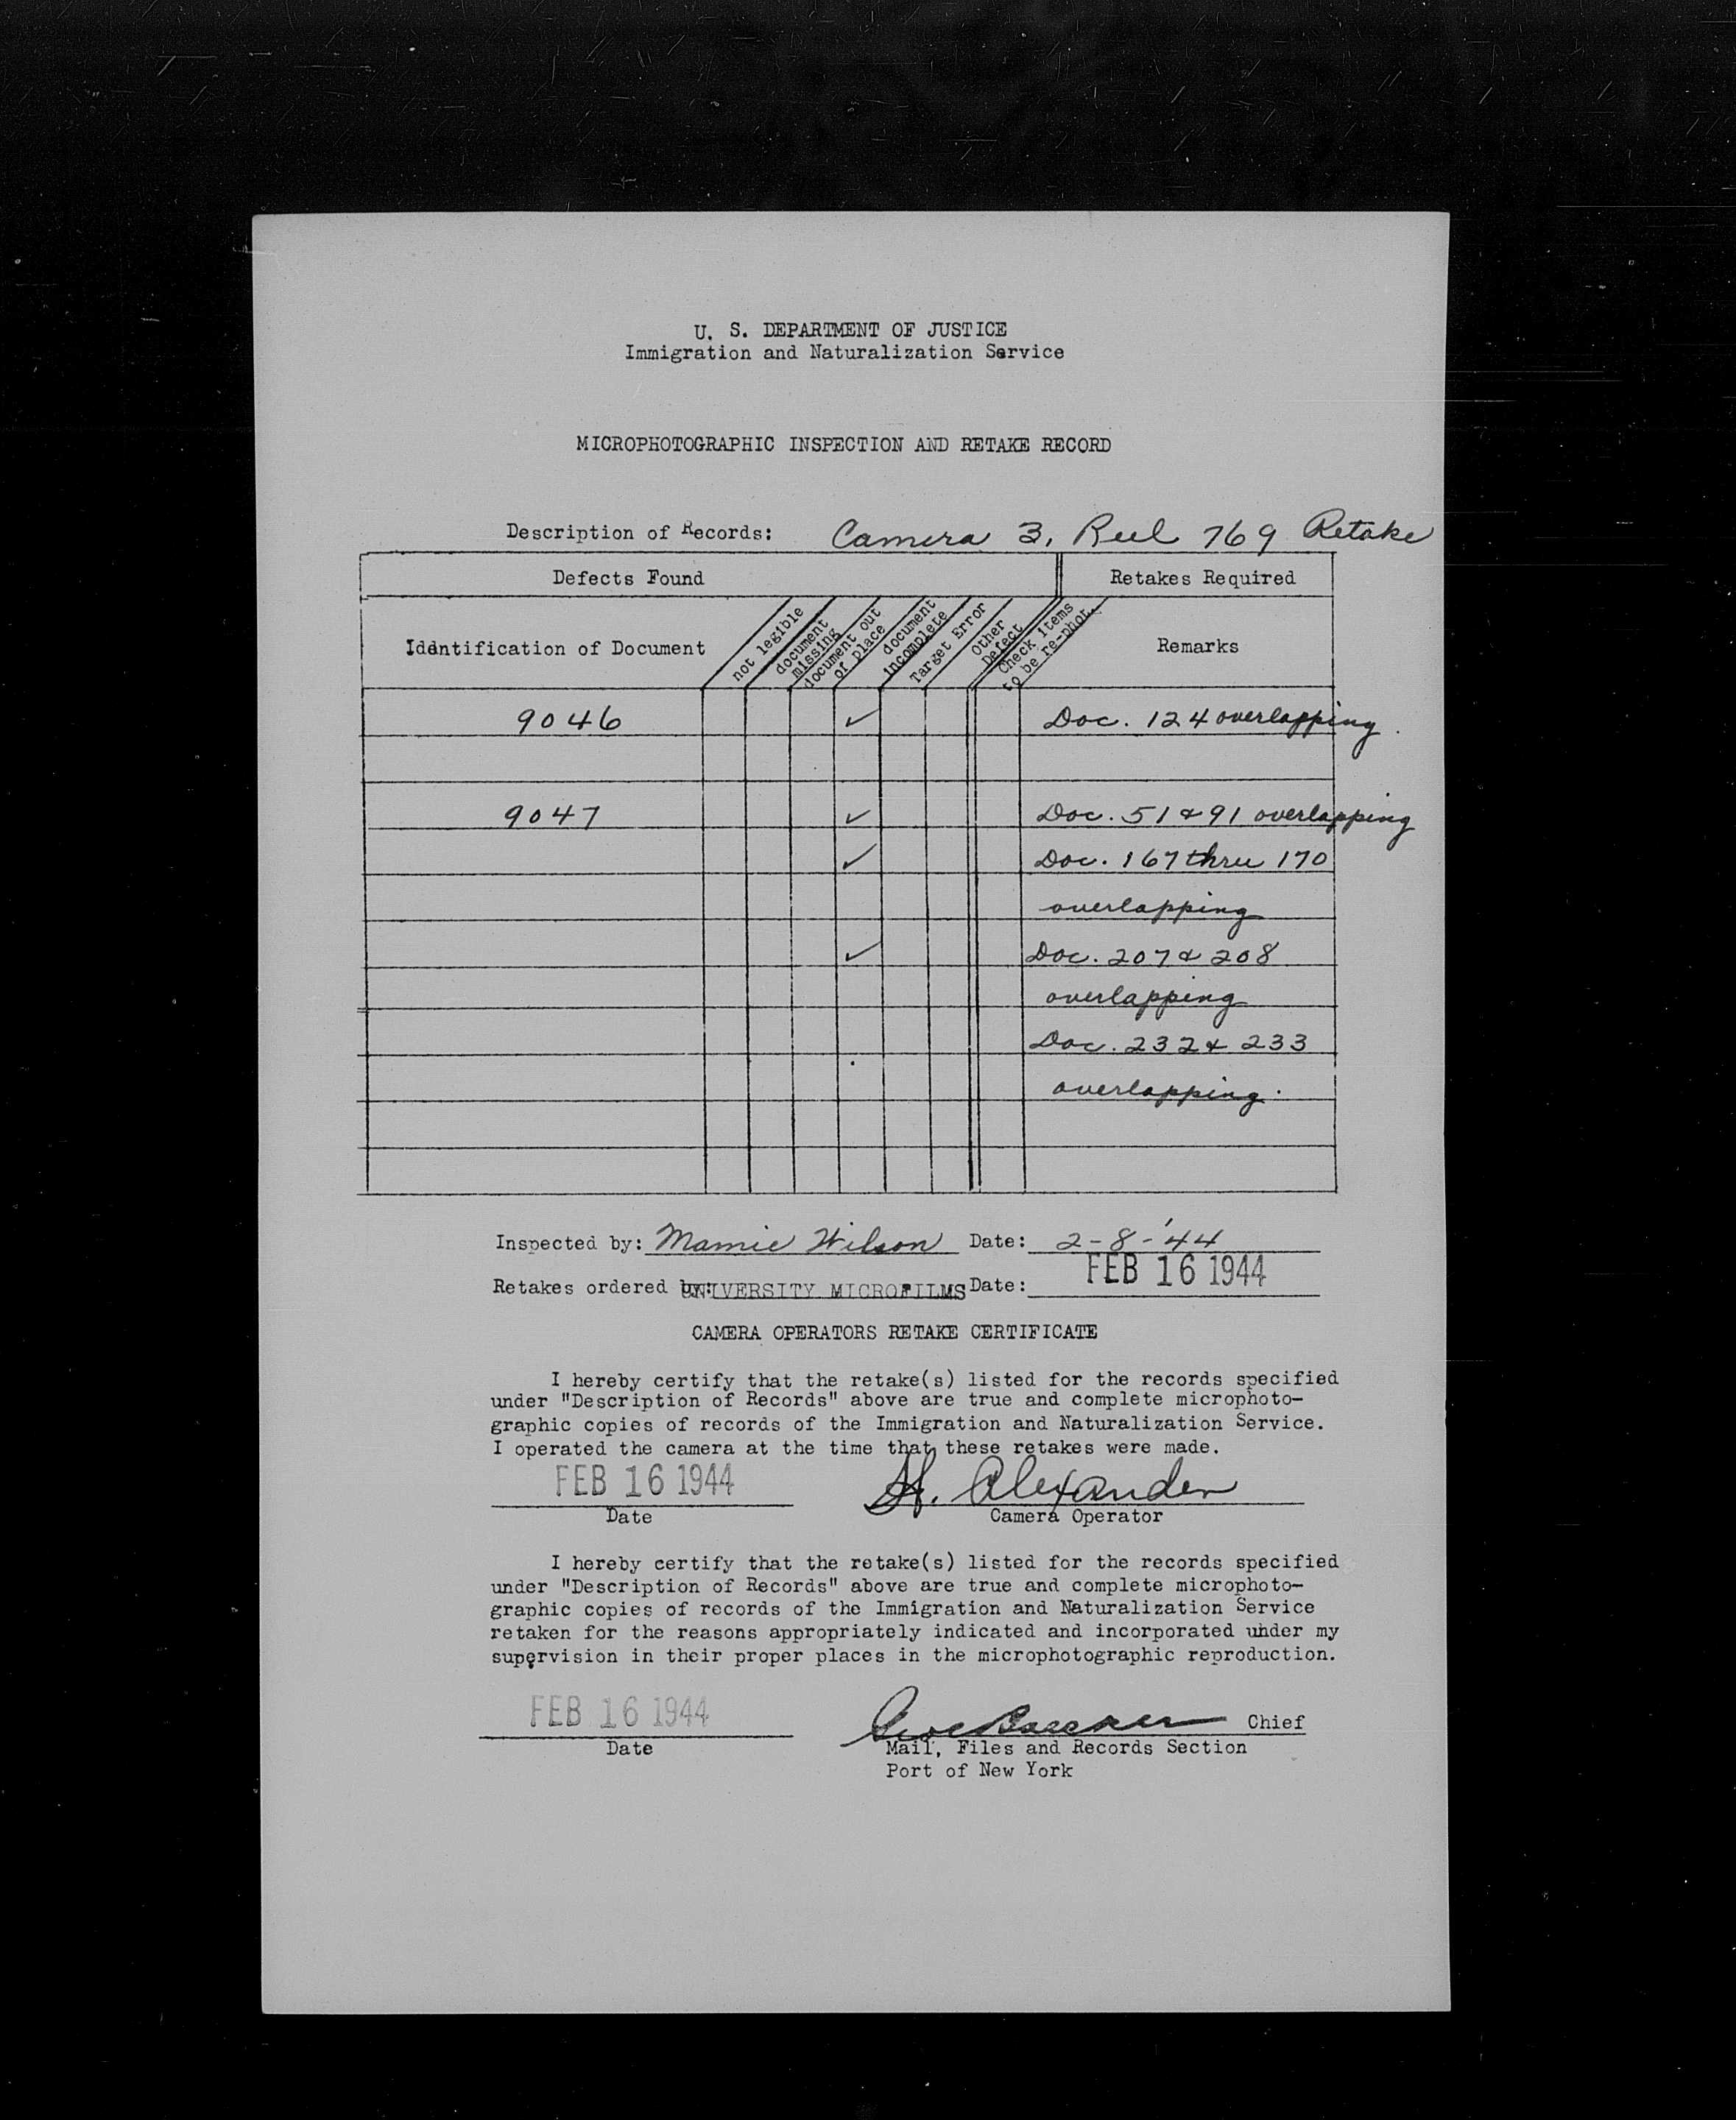 U. S. DEPARTMENT OF JUSTICE
Immigration and Naturalization Service
MICROPHOTOGRAPHIC INSPECTION AND RETAKE RECORD
Description of Records: Camera 3, Reel 769 Retake
Defects Found
Retakes Required
Identification of Document
not legible
document missing
document out of place
document incomplete
Target Error
Other Defect
Check items to be re-phot.
Remarks
9046 ✓ Doc. 124 overlapping.
9047 ✓ Doc. 51 & 91 overlapping
✓ Doc. 167 thru 170
overlapping
✓ Doc. 207 & 208
overlapping
Doc. 232 & 233
overlapping.
Inspected by: Mamie Wilson Date: 2-8-'44
Retakes ordered by: UNIVERSITY MICROFILMS Date: FEB 16 1944
CAMERA OPERATORS RETAKE CERTIFICATE
I hereby certify that the retake(s) listed for the records specified
under "Description of Records" above are true and complete microphoto-
graphic copies of records of the Immigration and Naturalization Service.
I operated the camera at the time that these retakes were made.
FEB 16 1944 H. Alexander
Date Camera Operator
I hereby certify that the retake(s) listed for the records specified
under "Description of Records" above are true and complete microphoto-
graphic copies of records of the Immigration and Naturalization Service
retaken for the reasons appropriately indicated and incorporated under my
supervision in their proper places in the microphotographic reproduction.
FEB 16 1944 Chief
Date Mail, Files and Records Section
Port of New York